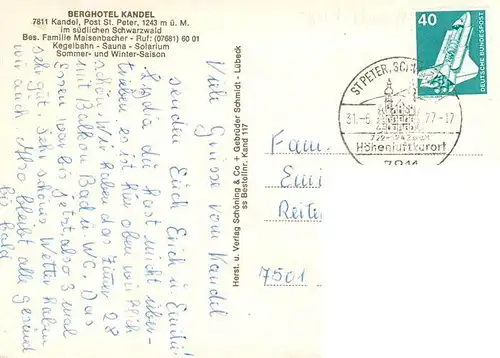 BERGHOTEL KANDEL
7811 Kandel, Post St. Peter, 1243 m ü. M.
im südlichen Schwarzwald
Bes. Familie Maisenbacher - Ruf: (07681) 60 01
Kegelbahn - Sauna - Solarium
Sommer- und Winter-Saison
Viele Grüsse vom Kandel
senden Euch Erich u. Emilie
Lydia du hast nicht über-
trieben es ist hier oben wirklich
schön. Wir haben das Zimmer 28
mit Balkon Bad u. WC. Das
Essen war bis jetzt, also 3 mal
sehr gut. Sehr schönes Wetter haben
wir auch. Also bleibt alle gesund
bis bald
Horst. u. Verlag Schöning & Co + Gebrüder Schmidt - Lübeck
ss Bestellnr. Kand 117
40
DEUTSCHE BUNDESPOST
ST PETER, SCHW
31.-8. 77-17
Höhenluftkurort
7811
Fam.
Emi
Reite
7501